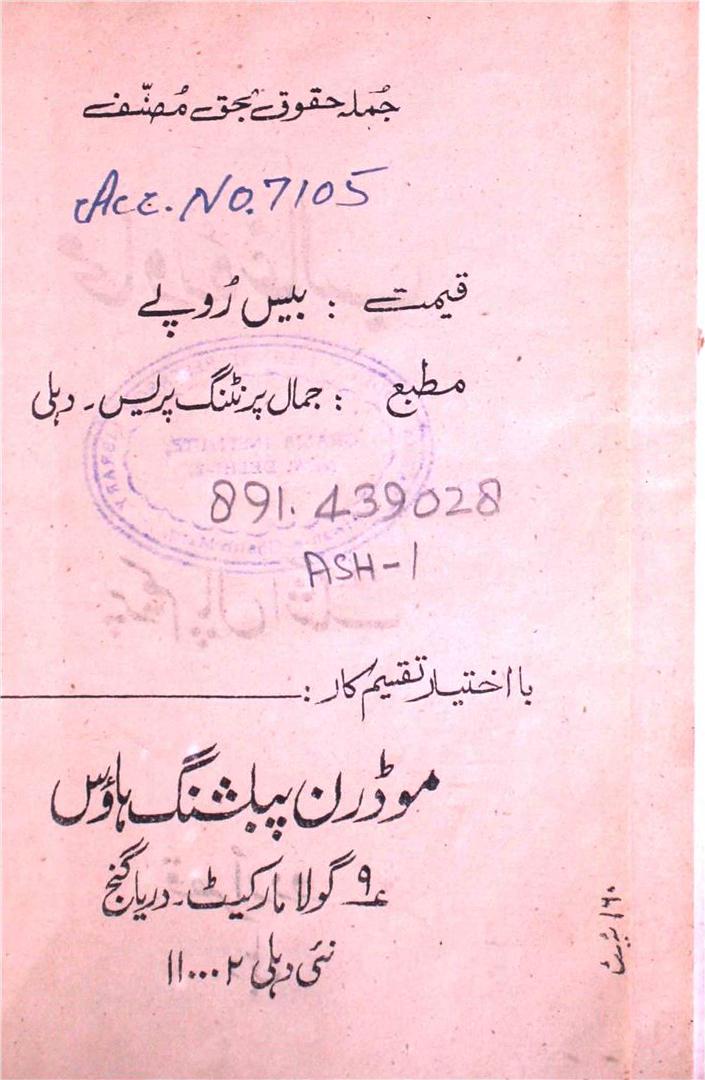 جُملہ حقوق بحق مُصنّف
Acc. No. 7105
قیمت : بیس رُوپے
مطبع : جمال پرنٹنگ پریس۔ دہلی
891.439028
ASH-1
با اختیار تقسیم کار :
موڈرن پبلشنگ ہاؤس
۹ گولا مارکیٹ۔ دریا گنج
نئی دہلی ۱۱۰۰۰۲